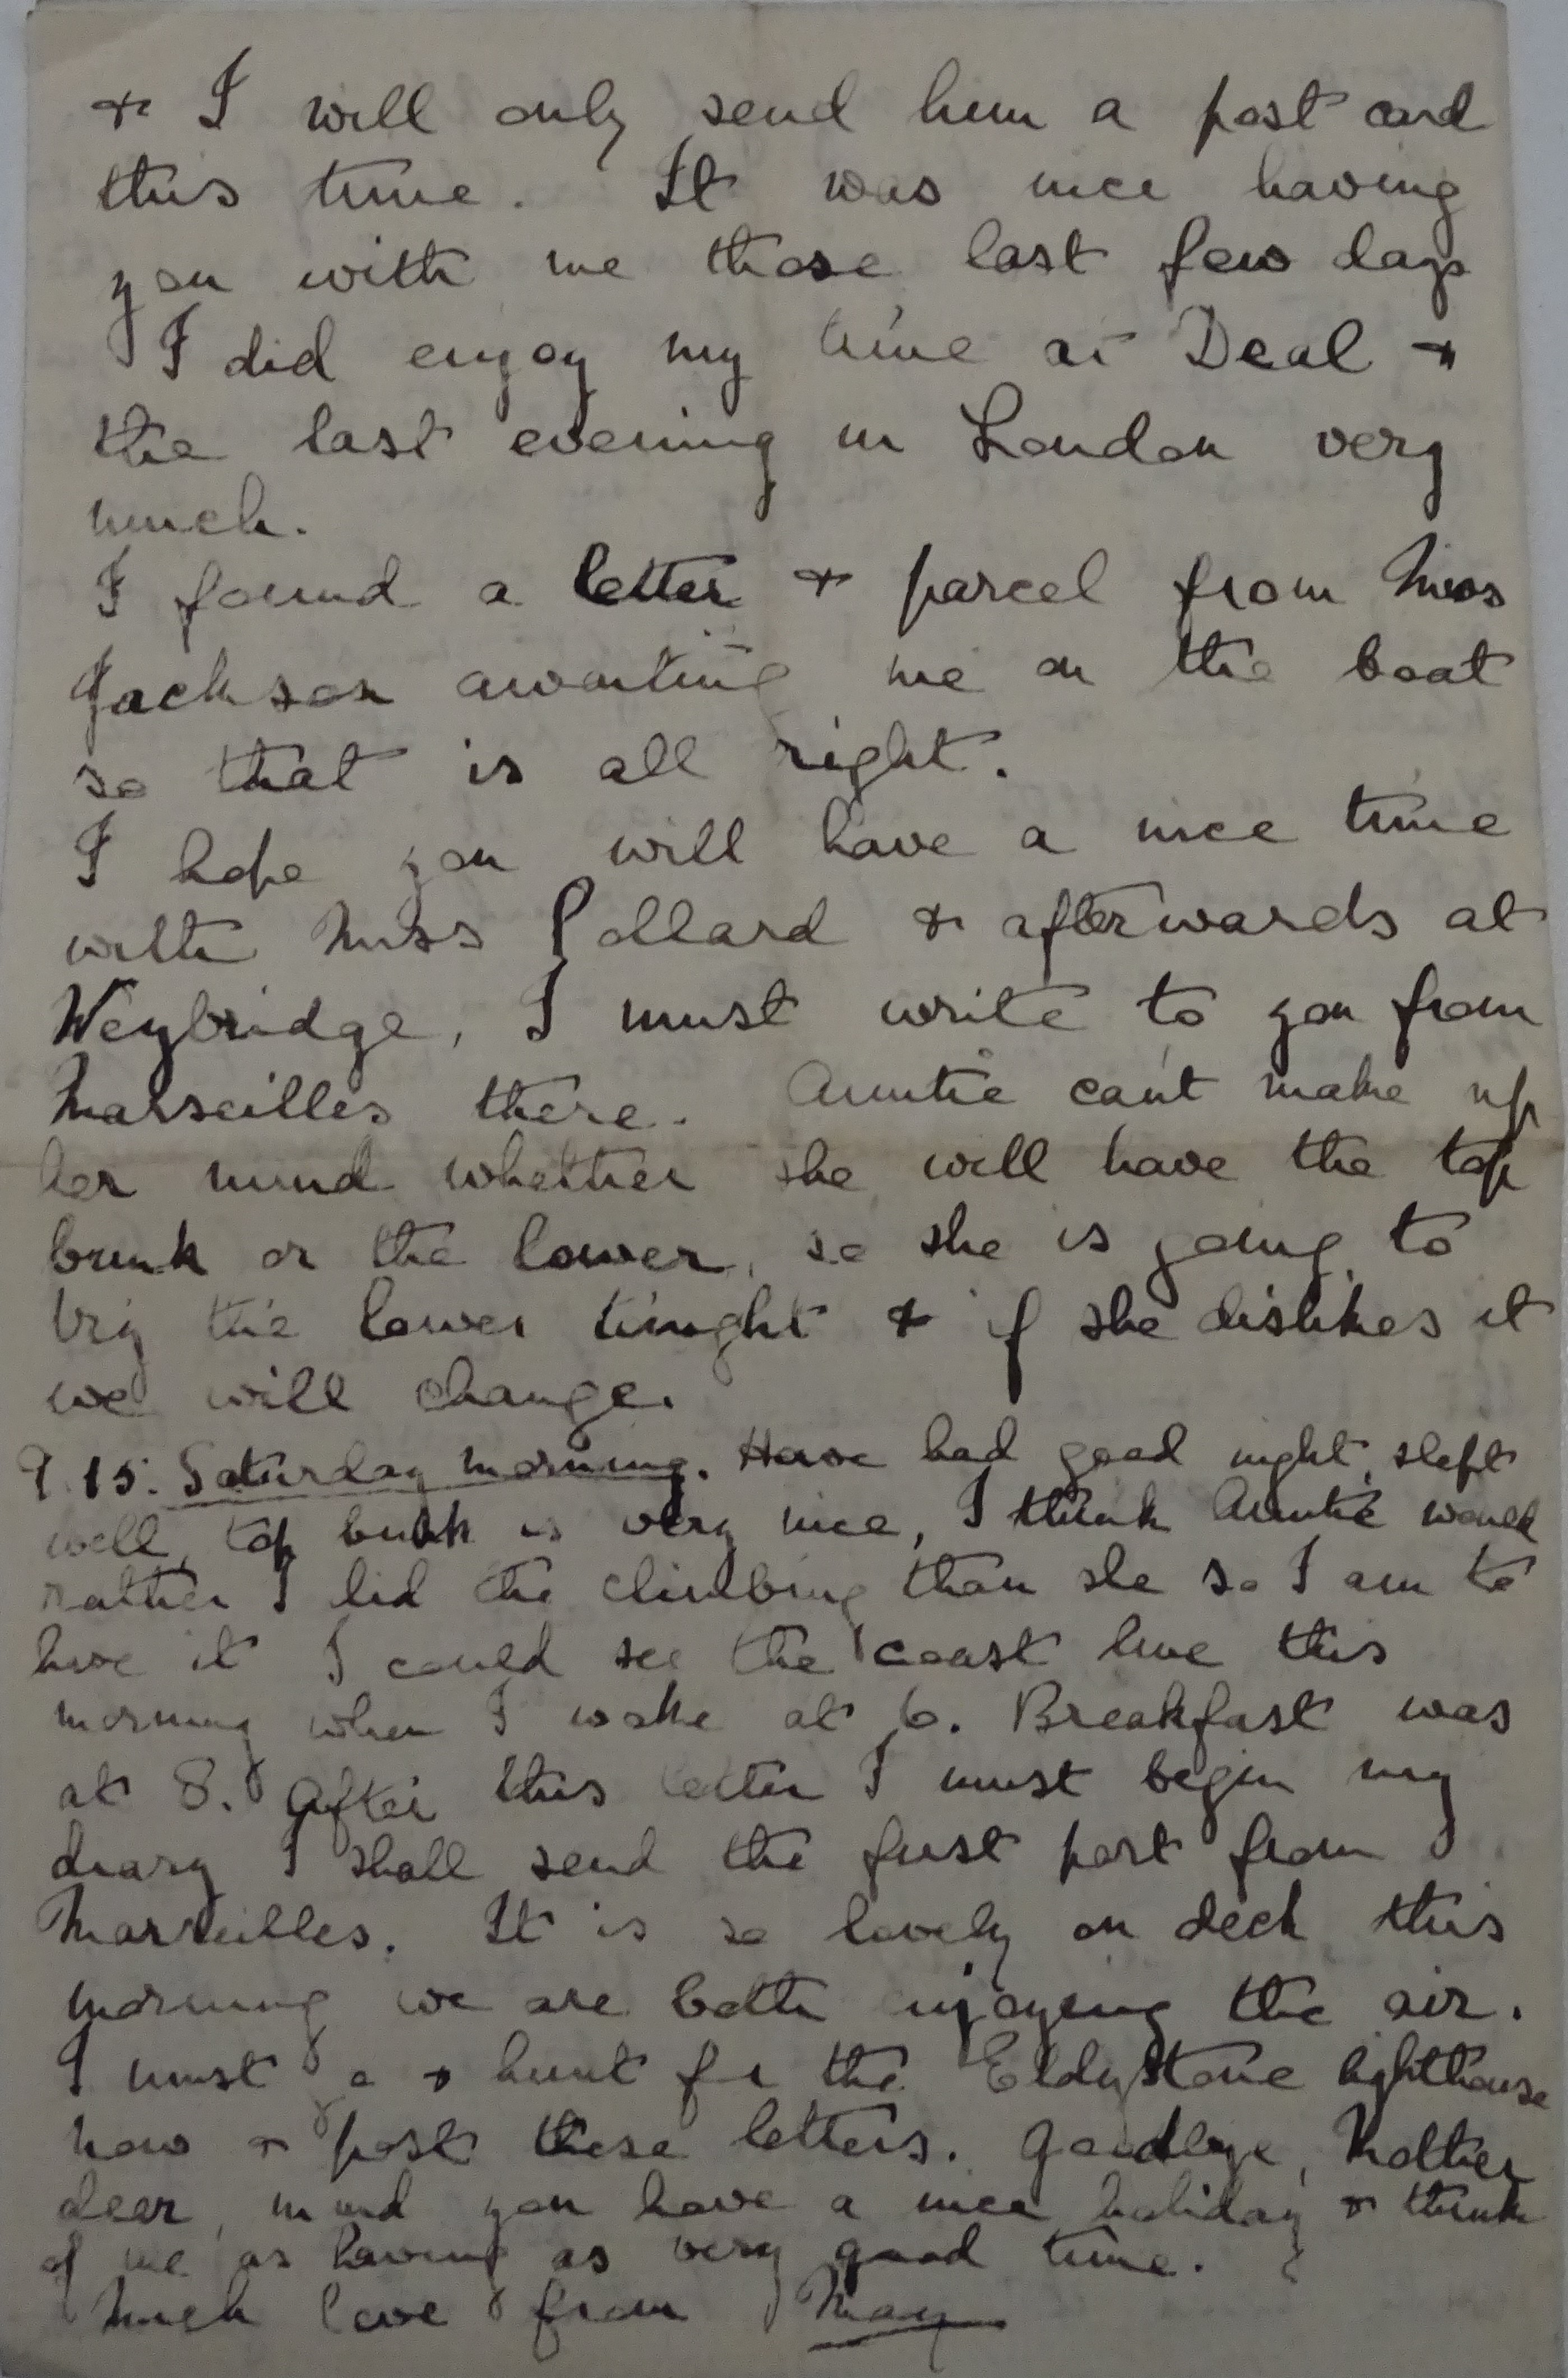 & I will only send him a post card
this time. It was nice having
you with me those last few days
I did enjoy my time at Deal &
the last evening in London very
much.
I found a letter & parcel from Miss
Jackson awaiting me on the boat
so that is all right.
I hope you will have a nice time
with Miss Pollard & afterwards at
Weybridge, I must write to you from
Marseilles there. Auntie can't make up
her mind whether she will have the top
bunk or the lower, so she is going to
try the lower tinight & if she dislikes it
we will change.
9.15. Saturday morning. Have had good night, slept
well, top bunk is very nice, I think Auntie would
rather I did the climbing than she so I am to
have it I could see the coast line this
morning when I woke at 6. Breakfast was
at 8. After this letter I must begin my
diary I shall send the first part from
Marseilles. It is so lovely on deck this
morning we are both enjoying the air.
I must go & hunt for the Eddystone lighthouse
now & post these letters. Goodbye, Mother
dear, mind you have a nice holiday & think
of me as having as very good time.
Much love from May